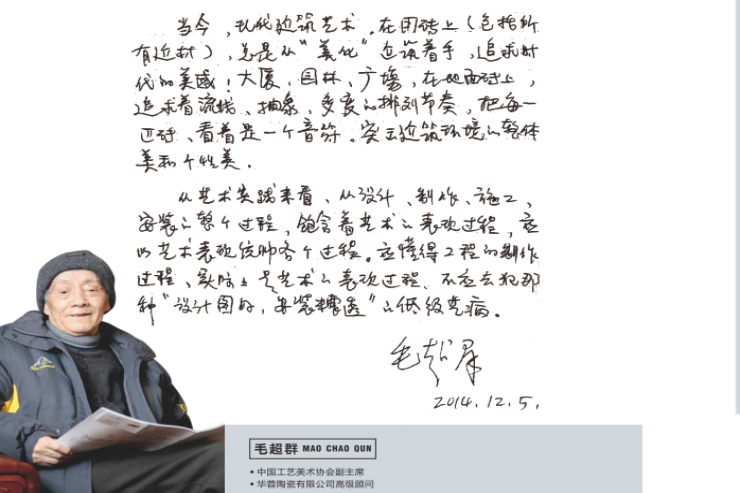 当今,现代边筑艺术。在用砖上(包括所
有边材),总是从“美化”边筑着手,追求时
代的美感!大厦、园林、广场,在地面砖上,
追求着流线、抽象、多变的排列节奏,把每一
匹砖、看着是一个音符。突出边筑环境的整体
美和个性美。
从艺术实践来看、从设计、制作、施工、
安装的整个过程,饱含着艺术的表现过程,应
以艺术表现统帅各个过程。应懂得工程的制作
过程、实际上是艺术的表现过程、不应去犯那
种“设计图好,安装糟透”的低级毛病。
毛超群
2014.12.5.
毛超群 MAO CHAO QUN
• 中国工艺美术协会副主席
• 华蓉陶瓷有限公司高级顾问